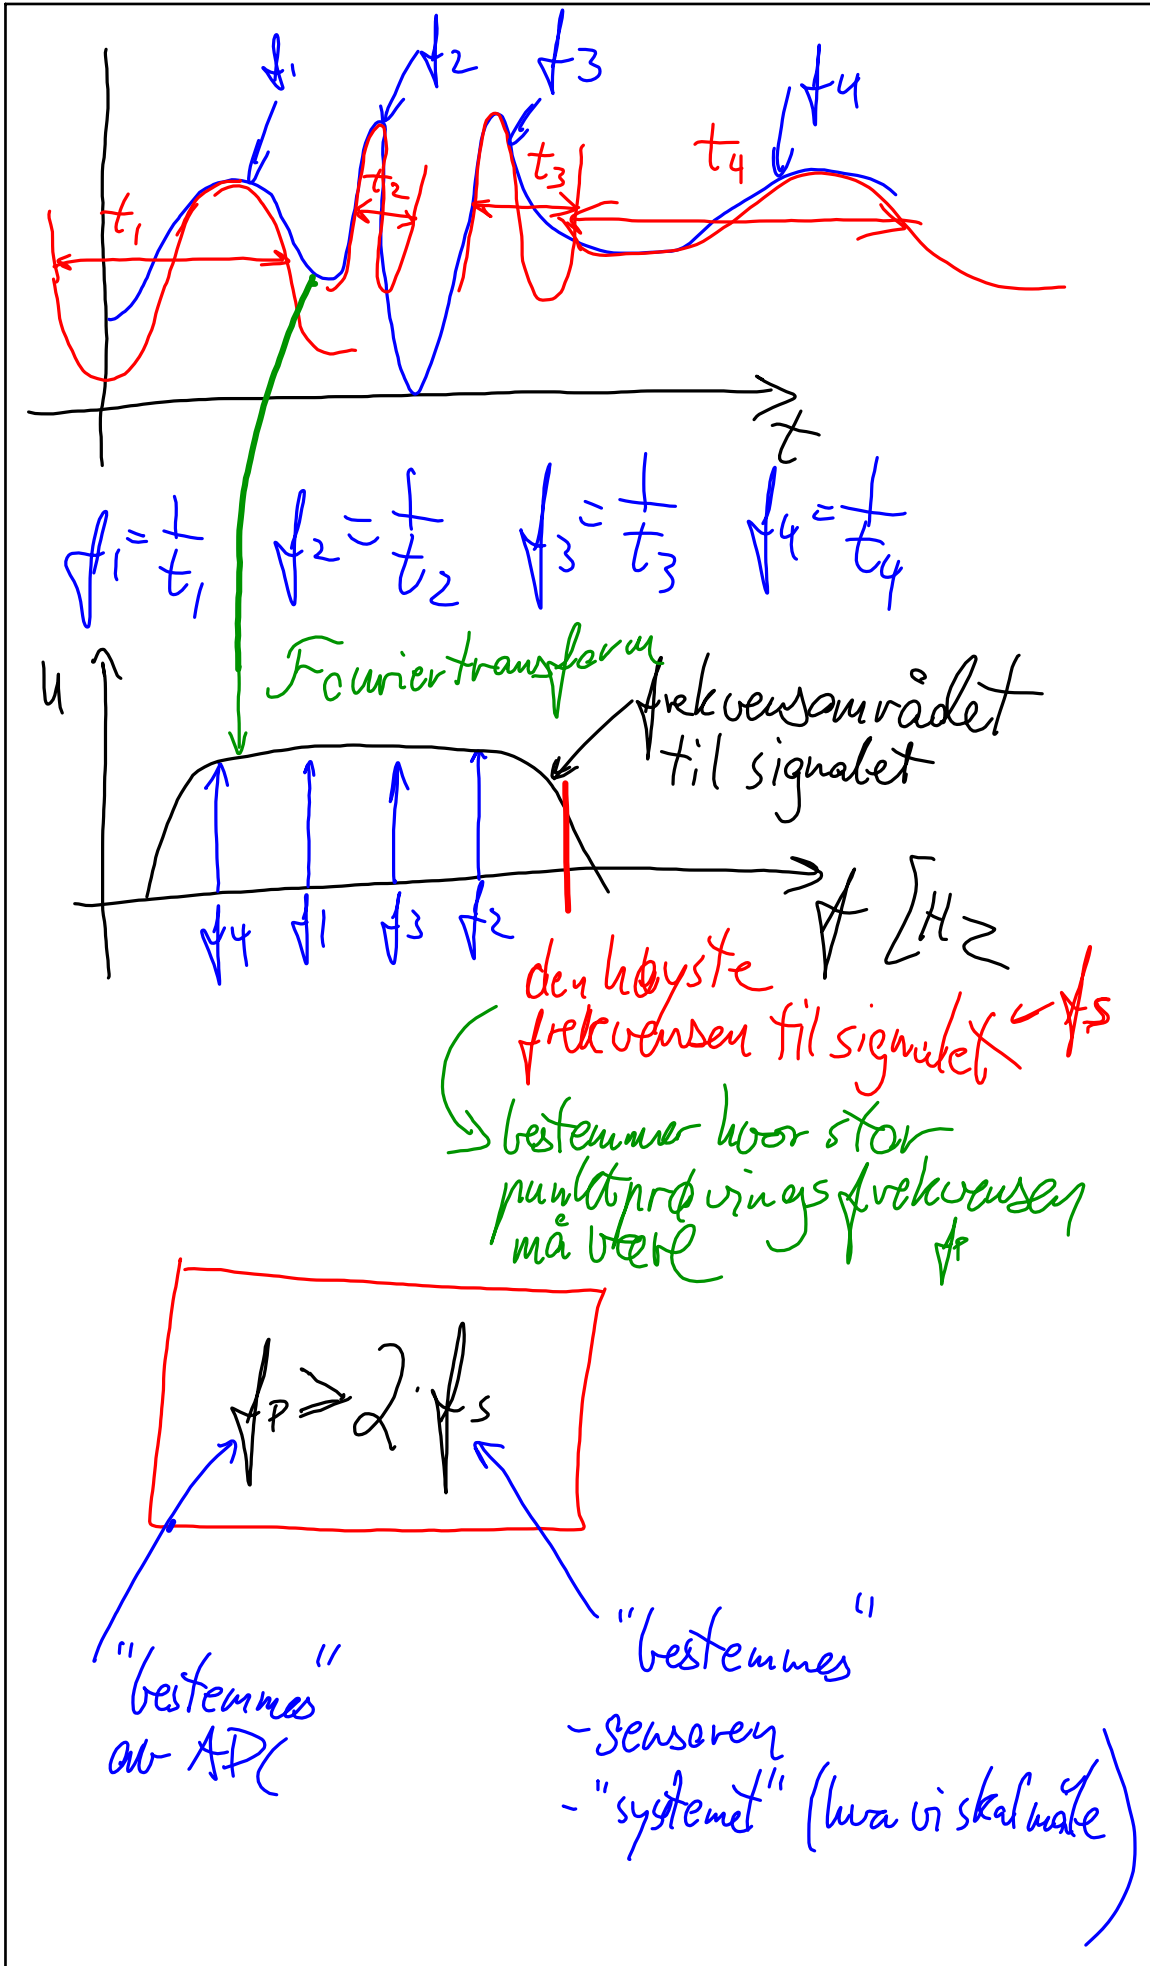 f1 f2 f3 f4
t1 t2 t3 t4
t
f1 = 1/t1 f2 = 1/t2 f3 = 1/t3 f4 = 1/t4
Fouriertransform
u
frekvensområdet
til signalet
f4 f1 f3 f2
f [Hz
den høyste
frekvensen til signalet fs
bestemmer hvor stor
punktprøvings frekvensen
må være fp
fp ≥ 2·fs
"bestemmes"
av ADC
"bestemmes"
- sensoren
- "systemet" (hva vi skal måle)